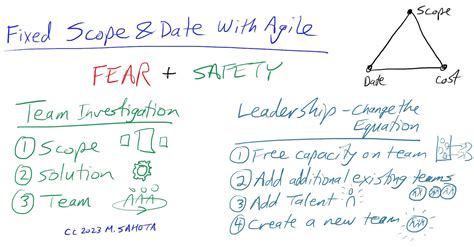 Fixed Scope & Date With Agile
Scope
Date
Cost
FEAR + SAFETY
Team Investigation
① Scope
② Solution
③ Team
CC 2023 M. SAHOTA
Leadership - Change the
Equation
① Free capacity on team
② Add additional existing teams
③ Add Talent
④ Create a new team